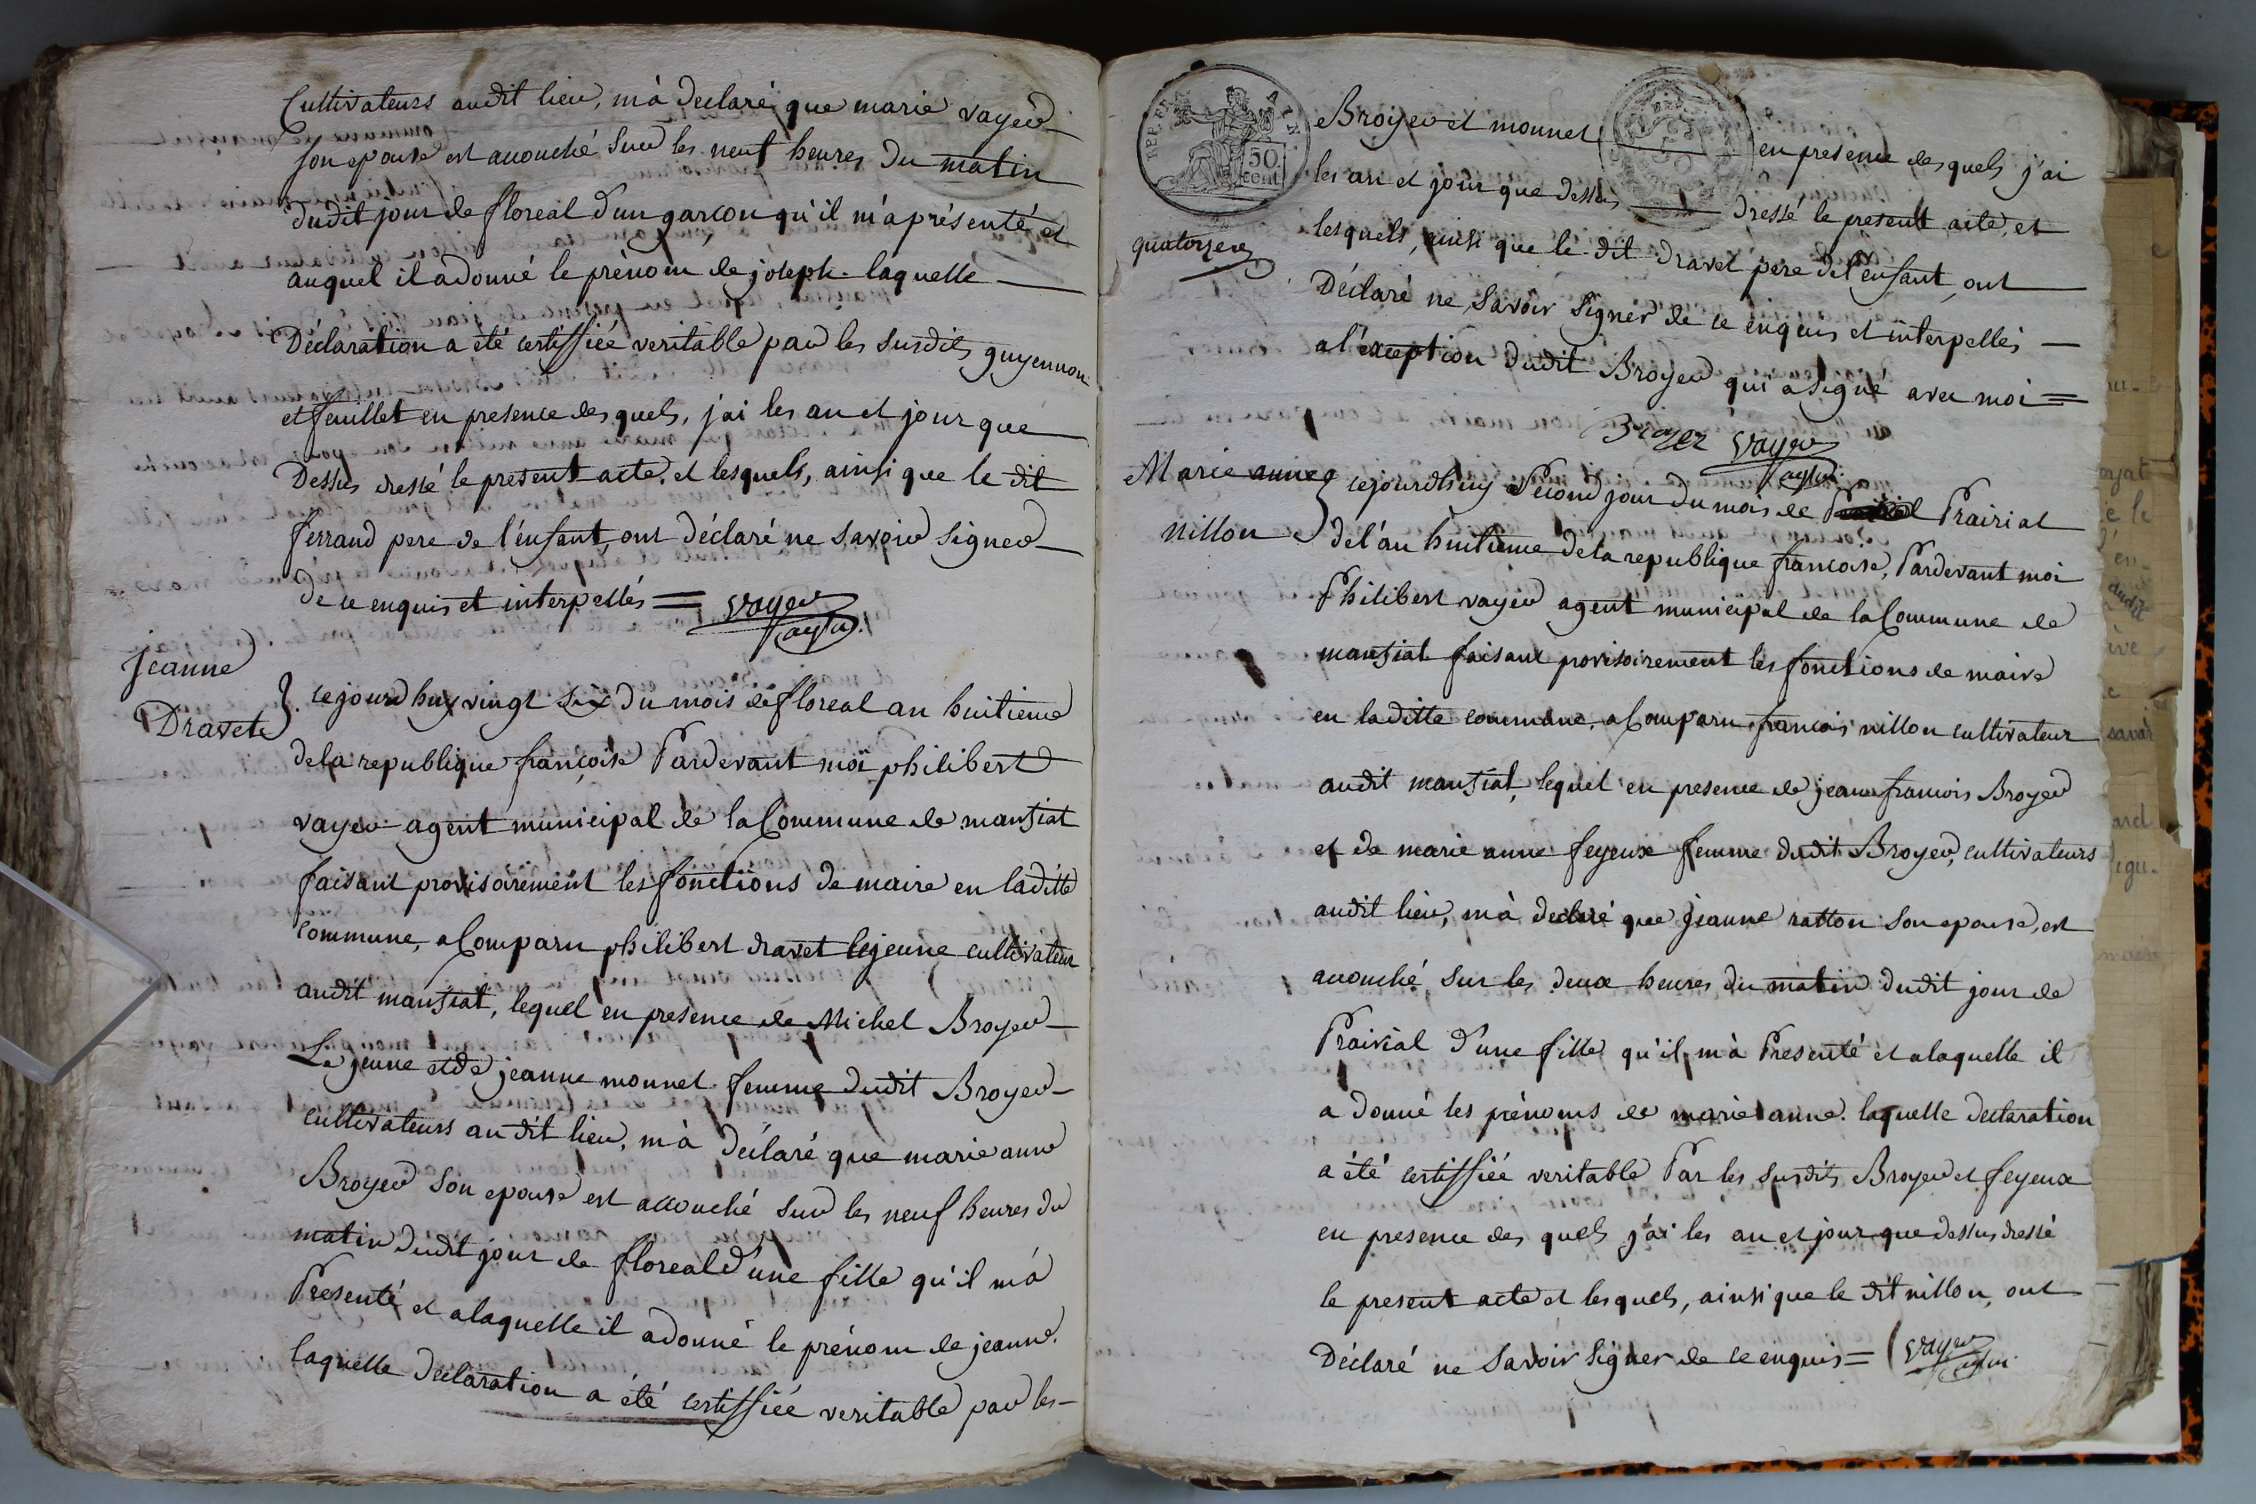 Cultivateurs audit lieu, m'à declaré que marie vayer
son epouse est accouché sur les neuf heures du matin
dudit jour de floreal d'un garçon qu'il m'a présenté et
auquel il a donné le prénom de joseph. laquelle
Déclaration a été certiffiée veritable par les susdits guyennon
et feuillet en presence des quels, j'ai les an et jour que
Dessus dressé le present acte. et lesquels, ainsi que le dit
ferrand pere de l'enfant, ont déclaré ne savoir signer
de ce enquis et interpellés = vayer
agent
jeanne
Dravet
cejourdhuy vingt six du mois de floreal an huitieme
de la republique françoise Pardevant moi philibert
vayer agent municipal de la Commune de mansiat
faisant provisoirement les fonctions de maire en laditte
commune, a Comparu philibert dravet lejeune cultivateur
audit mansiat, lequel en presence de Michel Broyer
Le jeune et de jeanne monnet femme dudit Broyer
cultivateurs audit lieu, m'à déclaré que marie anne
Broyer son epouse est accouché sur les neuf heures du
matin dudit jour de floreal d'une fille qu'il m'a
Presenté et a laquelle il a donné le prénom de jeanne.
laquelle declaration a été certiffiée veritable par les
REP. FRA
50
cent
quatorze
Broyer et monnet en presence des quels j'ai
les an et jour que dessus dressé le present acte, et
lesquels, ainsi que le dit dravet pere de l'enfant, ont
Déclaré ne savoir signer de ce enquis et interpellés
a l'exception dudit Broyer qui a signé avec moi =
Broyer vayer
agent
Marie anne
nillon
cejourdhuy Second jour du mois de Prairial
de l'an huitieme de la republique francoise, Pardevant moi
Philibert vayer agent municipal de la Commune de
mansiat faisant provisoirement les fonctions de maire
en laditte commune, a Comparu francois nillon cultivateur
audit mansiat, lequel en presence de jean francois Broyer
et de marie anne feyeux femme dudit Broyer, cultivateurs
audit lieu, m'à declaré que jeanne ratton son epouse, est
accouché sur les deux heures du matin dudit jour de
Prairial d'une fille qu'il m'à Presenté et a laquelle il
a donné les prénoms de marie anne. laquelle declaration
a été certiffiée veritable Par les susdits Broyer et feyeux
en presence des quels j'ai les an et jour que dessus dressé
le present acte et lesquels, ainsi que le dit nillon, ont
Déclaré ne savoir signer de ce enquis = vayer
agent